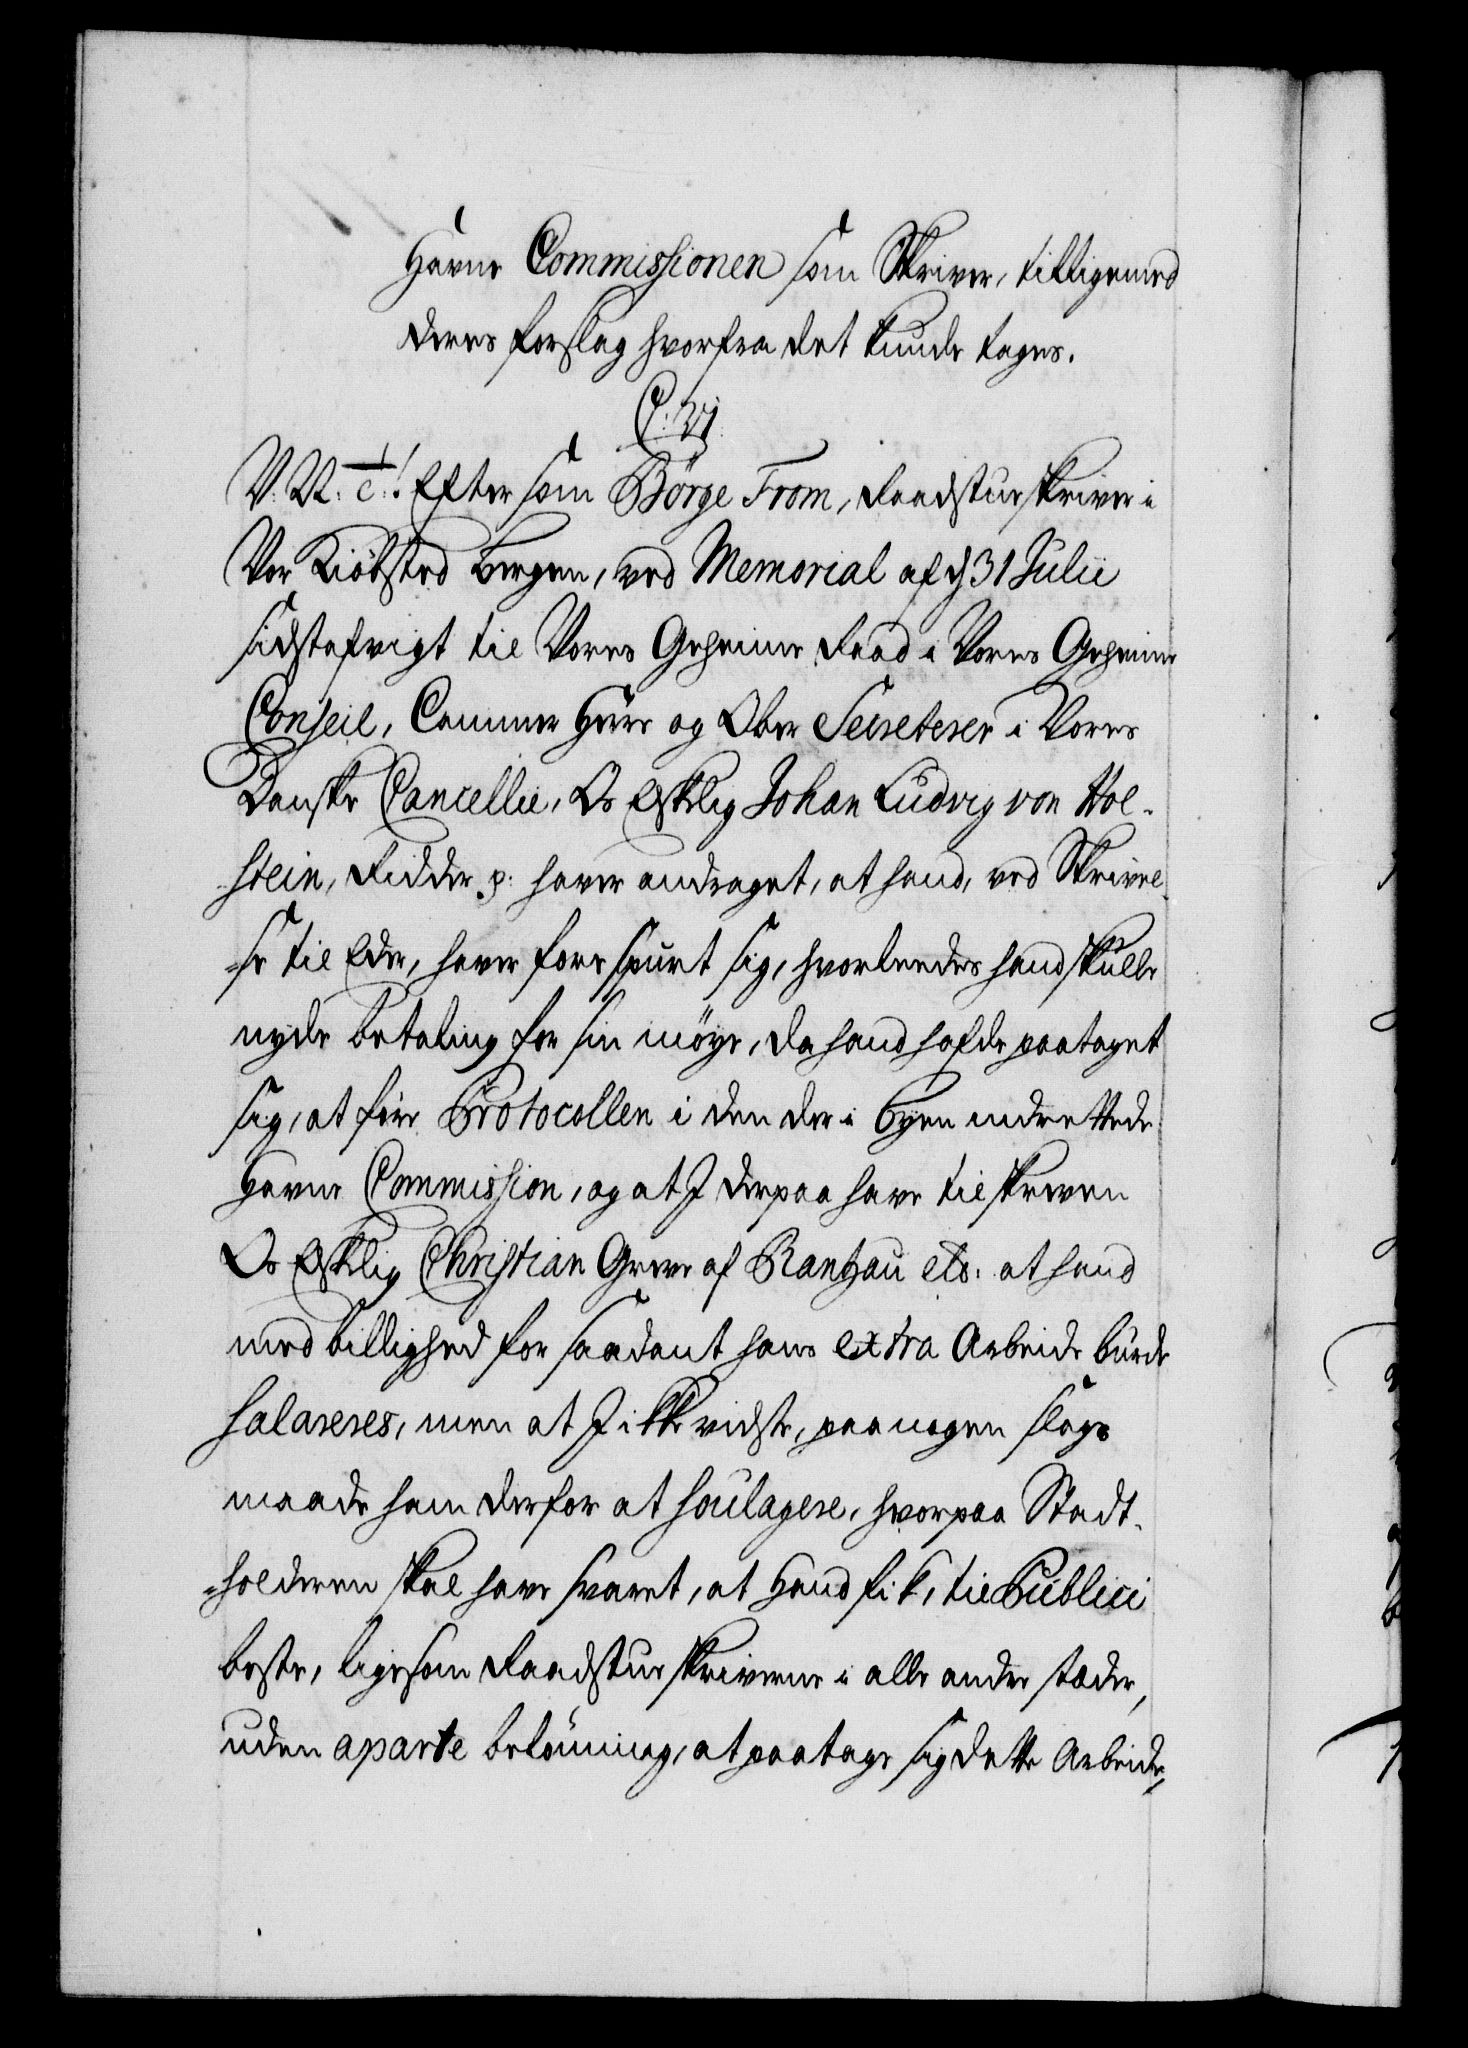 Havne Commissionen som Skriver, tilligemed
deres forslag hvorfra det kunde tages.
C: VI
V. V. c.! Eftersom Börge From, Raadstueskriver i
Vor Kiöbsted Bergen, ved Memorial af d 31 Julii
sidstafvigt til Vores Geheime Raad i Vores Geheime
Conseil, Cammer Herre og Ober Secreterer i Vores
Danske Cancellie, Os Elskelig Johan Ludvig von Hol-
stein, Ridder p: haver andraget, at hand, ved Skrivel-
-se til Eder, haver forespurt sig, hvorleedes hand skulle
nyde betaling for sin möye, da hand hafde paataget
sig, at före Protocollen i den der i Byen indrettede
Havne Commission, og at I derpaa have tilskreven
Os Elskelig Christian Greve af Rantzau etc. at hand
med billighed for saadant hans extra Arbeide burde
salareres, men at I ikke vidste, paa nogen slags
maade ham derfor at soulagere, hvorpaa Stadt-
-holderen skal have svaret, at Hand fik, til Publici
beste, ligesom Raadstueskriverne i alle andre stæder,
uden aparte belönning, at paatage sig dette Arbeide,